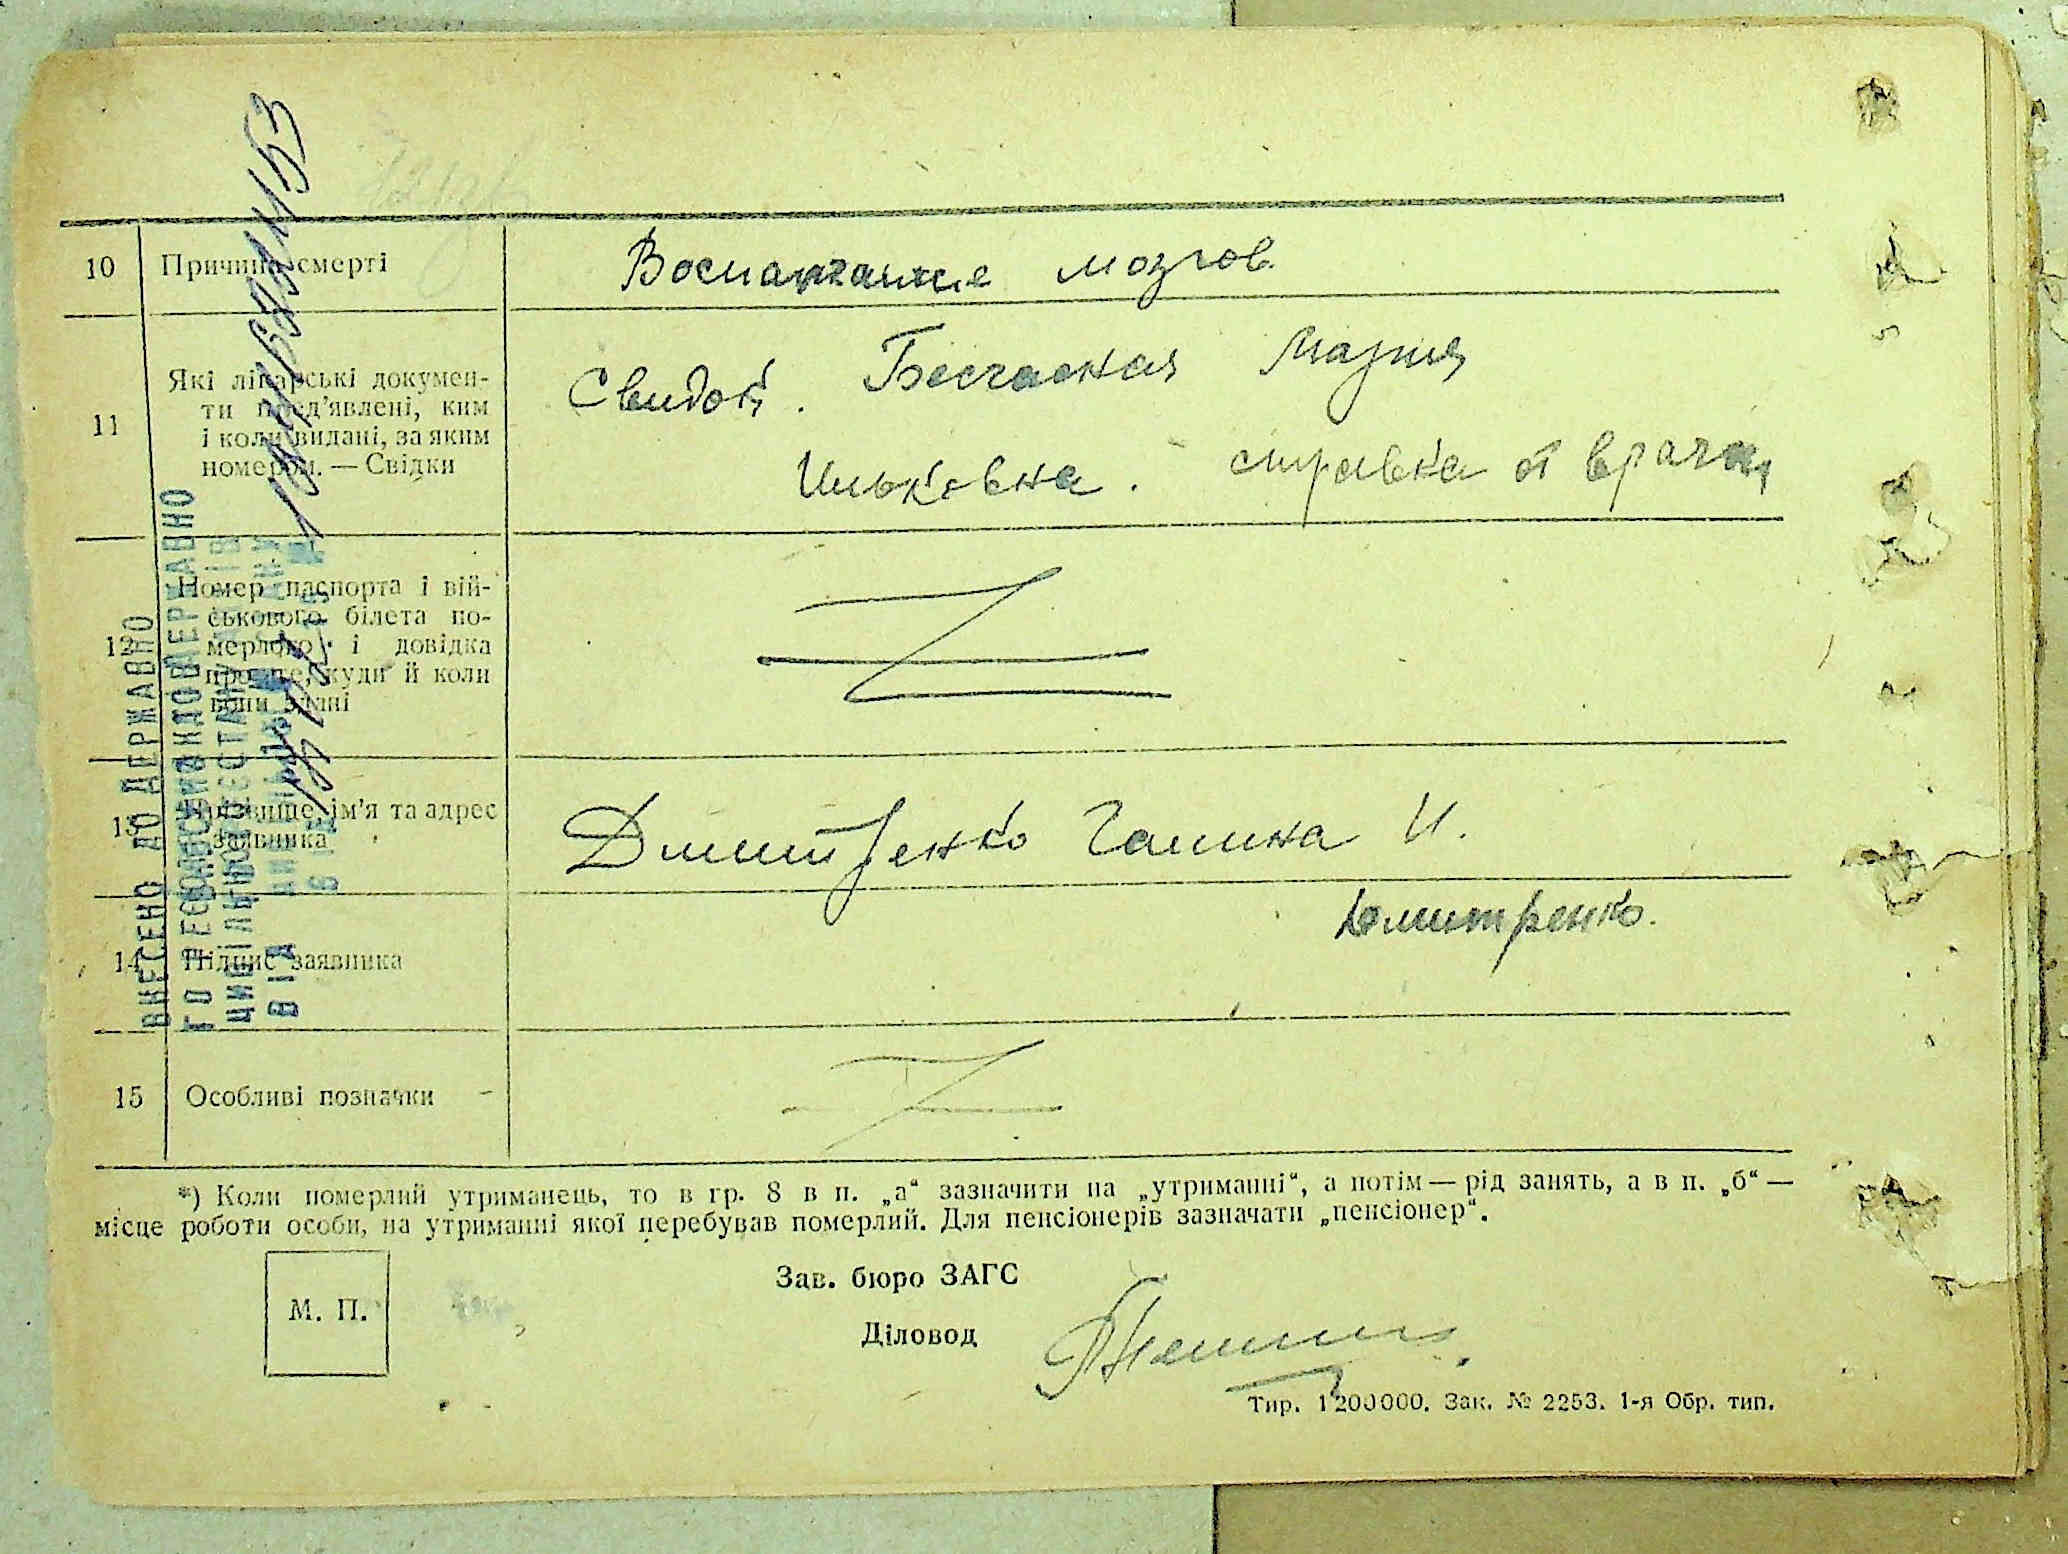 10 Причина смерті
Воспаление мозгов
11 Які лікарські докумен-
ти пред'явлені, ким
і коли видані, за яким
номером. — Свідки
Свидет. Бесчасная Мария
Ильковна. справка от врача
12 Номер паспорта і вій-
ськового білета по-
мерлого і довідка
про те, куди й коли
вони здані
13 Прізвище, ім'я та адрес
заявника
Дмитренко Галина И.
14 Підпис заявника
Дмитренко.
15 Особливі позначки
*) Коли померлий утриманець, то в гр. 8 в п. „а“ зазначити на „утриманні“, а потім — рід занять, а в п. „б“ —
місце роботи особи, на утриманні якої перебував померлий. Для пенсіонерів зазначати „пенсіонер“.
М. П.
Зав. бюро ЗАГС
Діловод
Тир. 1200000. Зак. № 2253. 1-я Обр. тип.
ВНЕСЕНО ДО ДЕРЖАВНО
ГО РЕЄСТРУ
ЦИВІЛЬНОГО СТАНУ
ВІД